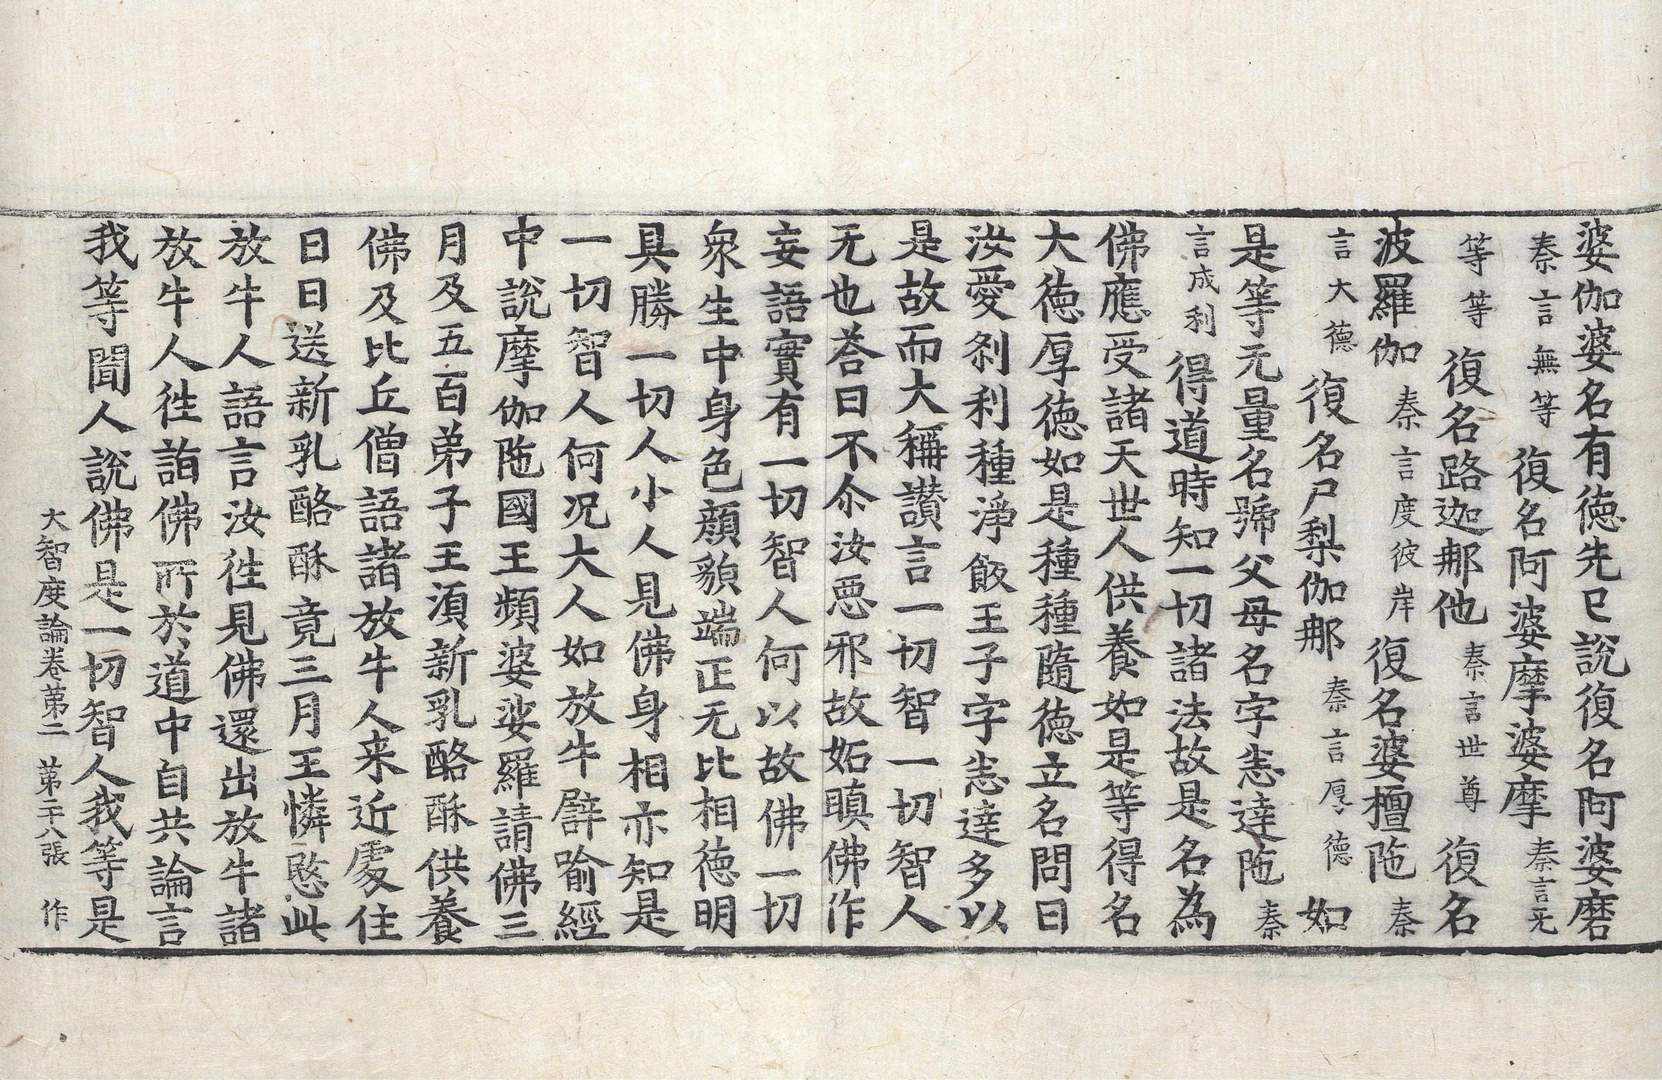 婆伽婆名有徳先已說復名阿婆磨
秦言無等復名阿婆摩婆摩秦言无
等等復名路迦那他秦言世尊復名
波羅伽秦言度彼岸復名婆檀陁秦
言大德復名尸梨伽那秦言厚德如
是等无量名號父母名字悉達陁秦
言成利得道時知一切諸法故是名為
佛應受諸天世人供養如是等得名
大徳厚徳如是種種隨徳立名問曰
汝愛刹利種淨飯王子字悉達多以
是故而大稱讃言一切智一切智人
无也荅曰不尒汝惡邪故妬瞋佛作
妄語實有一切智人何以故佛一切
衆生中身色顔貌端正无比相徳明
具勝一切人小人見佛身相亦知是
一切智人何况大人如放牛譬喻經
中說摩伽陁國王頻婆娑羅請佛三
月及五百弟子王湏新乳酪酥供養
佛及比丘僧語諸放牛人来近處住
日日送新乳酪酥竟三月王憐愍此
放牛人語言汝徃見佛還出放牛諸
放牛人徃詣佛所於道中自共論言
我等聞人說佛是一切智人我等是
大智度論卷第二 第二十八張 作